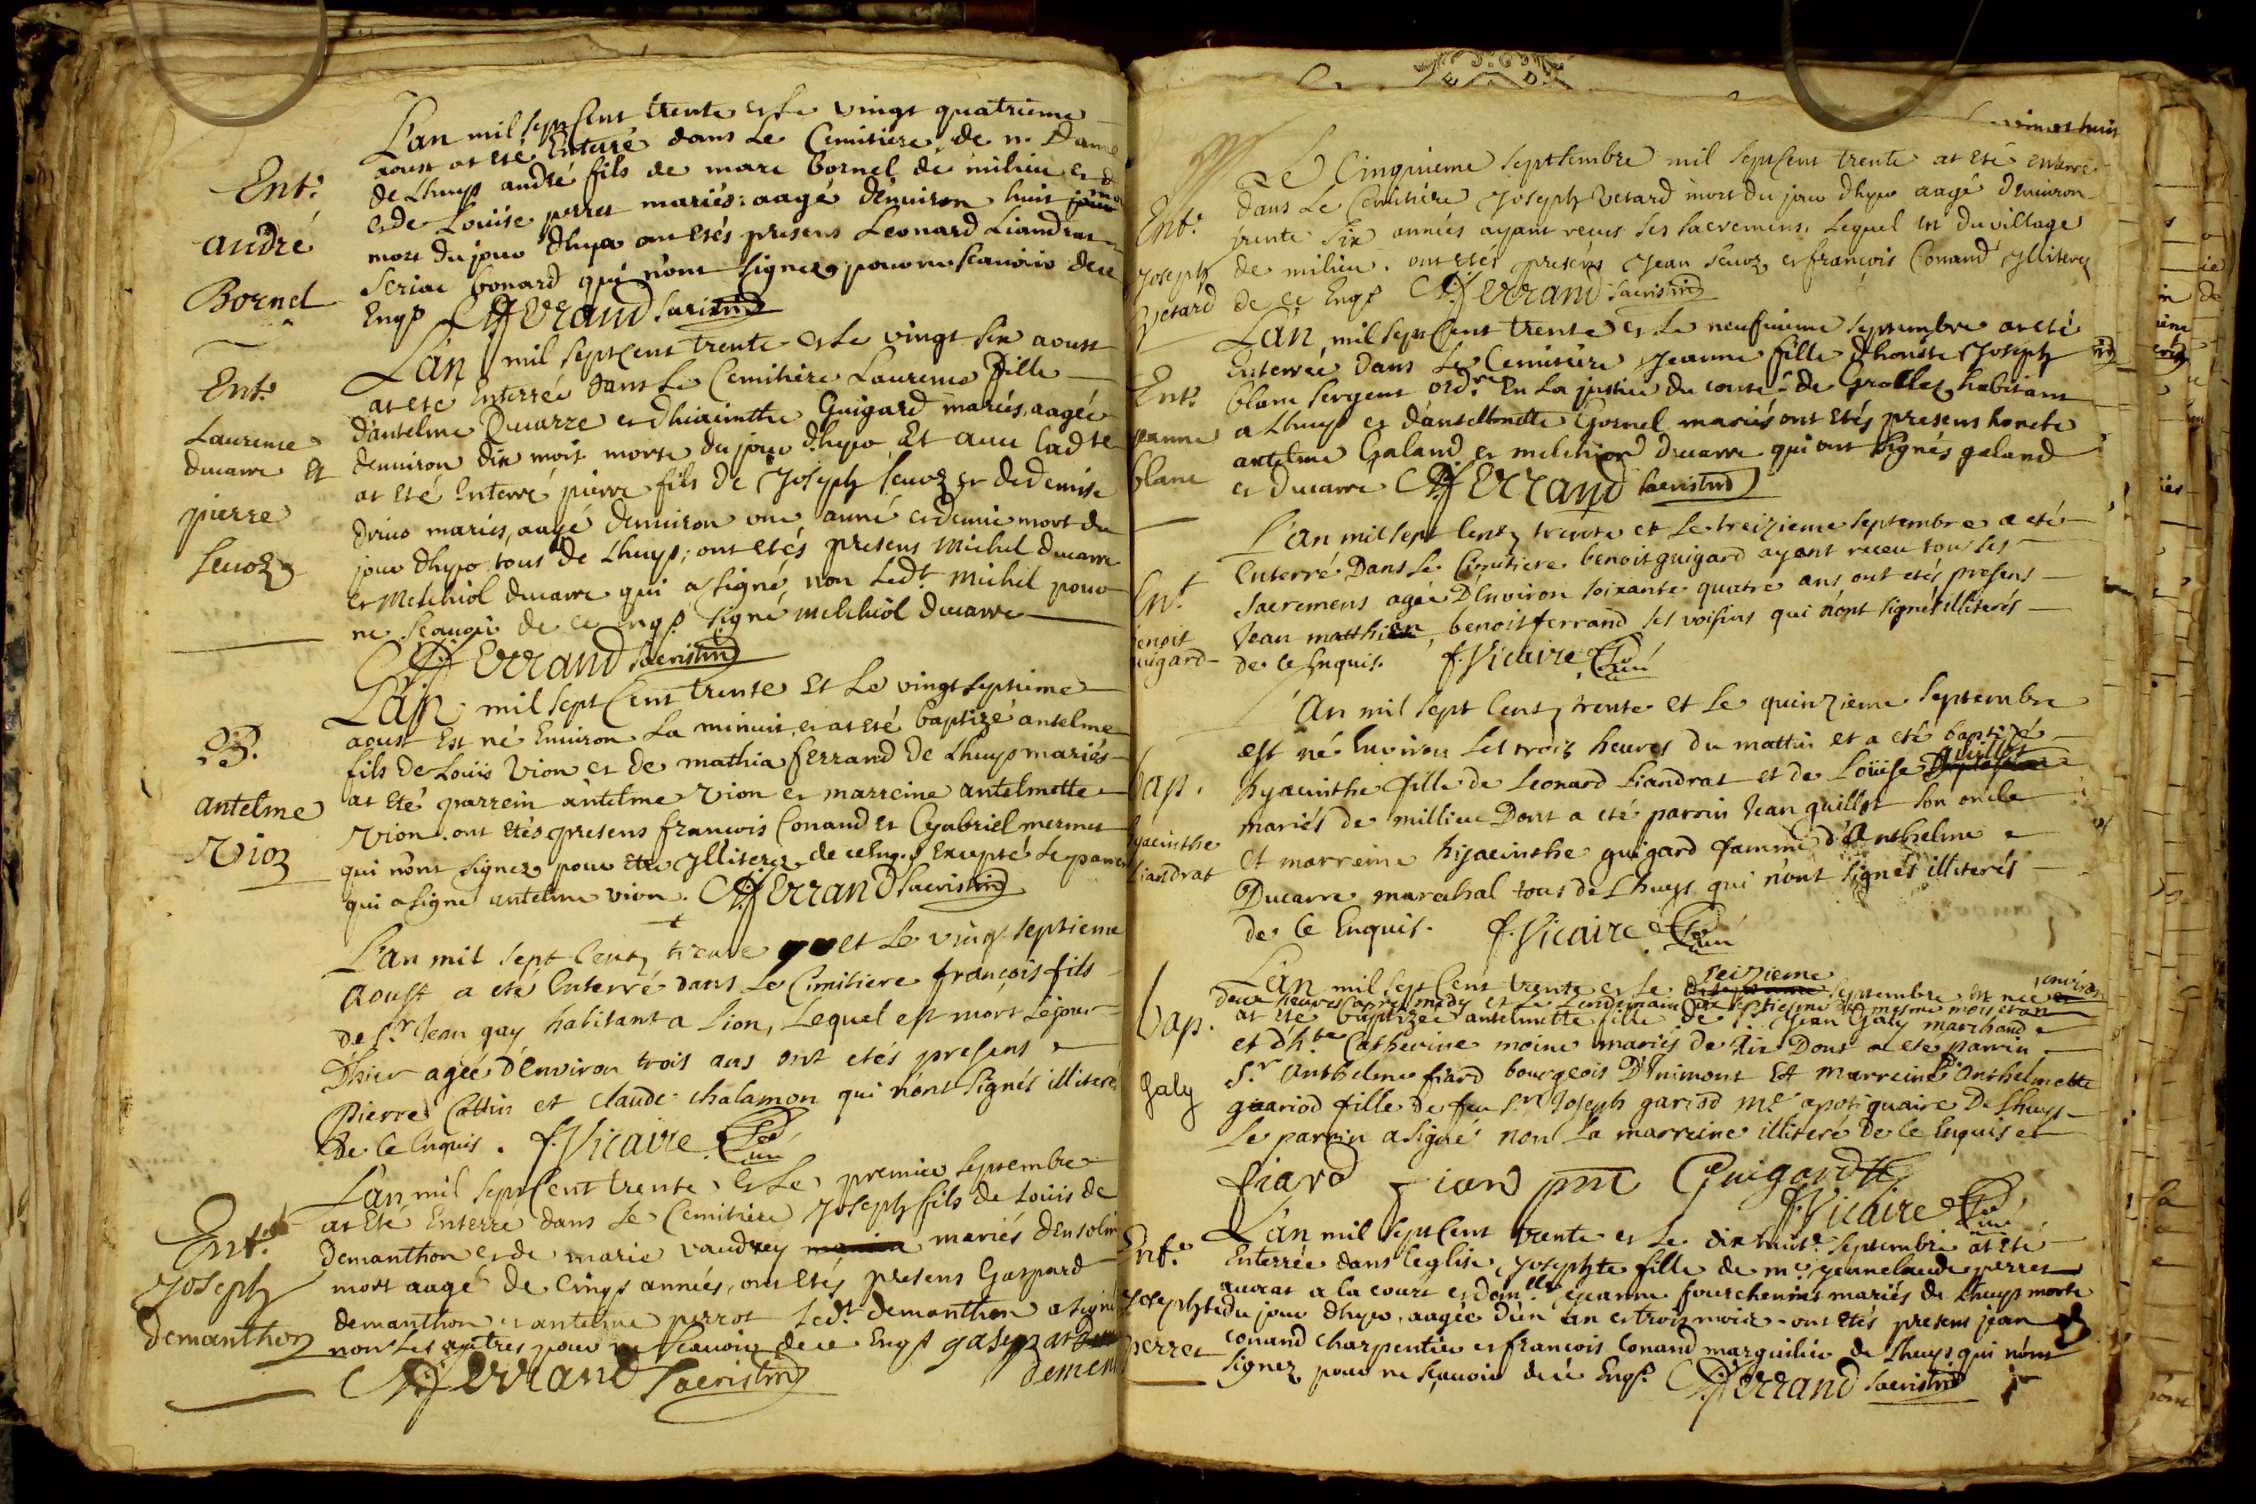 L'an mil sept Cent trente et le vingt quatrieme
aoust at eté Enterré dans le Cemitiere de n. Dame
de Lhuys andré fils de marc bornel de milieu
et de Louïse perret mariés, aagé d'environ huit
mort du jour dhyer ont etés presens Leonard Liandrat
bonard qui n'ont signez pour ne scauoir de ce
Enqs ferrand sacristain
Ent.
andré
Bornel
L'an mil sept Cent trente et le vingt six aoust
at eté Enterré dans le Cemitiere Laurence fille
d'antelme Ducarre et d'hiacinthe Guigard mariés, aagée
denuiron dix mois morte du jour d'hyer Et auec Ladte
at eté Enterré pierre fils de Joseph seuoz et de denise
mariés, aagé denuiron une anné et demie mort du
jour dhyer tous de Lhuys; ont etés presens Michel ducarre
et Melchiol ducarre qui a signé, non ledt michel pour
ne scauoir de ce enqs. signé melchiol ducarre
ferrand sacristain
Ent.
Laurence
ducarre et
pierre
seuoz
L'an mil sept Cent trente et le vingt septieme
aoust Est né Enuiron la minuit, et at eté baptizé antelme
fils de Loüis Vion et de mathia ferrand de Lhuys mariés
at eté parrein antelme Vion et marreine antelmette
Vion. ont etés presens francois Conand et Gabriel mermet
qui n'ont signez pour etre illiterez de ce enqs Excepté le parrein
qui a signé antelme vion. ferrand sacristain
B.
antelme
Vion
L'an mil sept Cent trente et le vingt septieme
Aoust a eté Enterré dans le Cimitiere françois fils
de Sr Jean gay habitant a Lion, Lequel est mort le jour
D'hier agée d'Environ trois ans ont etés presens
Pierre Cattin et Claude chalamon qui n'ont signés illiterés
de ce Enquis. f. Vicaire
L'an mil sept Cent trente et le premier septembre
at Eté Enterré dans le Cemitiere Joseph fils de Loüis de
Demanthon et de marie vaudrey mariés
mort aagé de Cinqs années, ont etés presens Gaspard
demanthon et antelme perrot ledt demanthon a signé
non les autres pour ne scauoir de ce Enqs gaspard
demen
ferrand sacristain
Ent.
Joseph
demanthon
vingt huit
Le Cinquieme septembre mil sept Cent trente at eté enterré
dans le Cemitiere Joseph Vetard mort du jour dhyer aagé d'enuiron
trente six années ayant receus ses sacremens. Lequel est du village
de milieu. ont etés presens Jean seuoz et françois Conand illiterez
de ce Enqs ferrand sacristain
Ent.
Joseph
Vetard
L'an mil sept Cent trente et le neufuieme septembre at eté
Enterrée dans le Cemitiere Jeanne fille d'honeste Joseph
blanc sergent ordre En la justice du comté de Grollez habitant
a Lhuys et d'antelmette Gornel mariés ont etés presens honete
antelme Galand et melchior Ducarre qui ont signés galand
et Ducarre ferrand sacristain
Ent.
jeanne
blanc
L'an mil sept Cent trente et le treizieme septembre a eté
Enterré Dans le Cimitiere benoit guigard ayant receu tous ses
Sacremens agée D'Environ soixante quatre ans ont etés presens
Jean benoit ferrand ses voisins qui n'ont signés illiterés
de ce Enquis. f. Vicaire
Ent.
benoit
guigard
L'An mil sept Cent trente et le quinzieme septembre
est né Environ les trois heures du mattin et a eté baptizé
hyacinthe fille de Leonard Liandrat et de Loüise guillot
mariés de millieu Dont a eté parrin Jean guillot son oncle
et marreine hijacinthe guigard famme d'Anthelme
Ducarre marechal tous de Lhuys qui n'ont signés illiterés
de ce Enquis. f. Vicaire
bap.
hyacinthe
Liandrat
L'an mil sept Cent trente et le seizieme septembre est née environ
deux heures apres midy et le Lendemain
at eté baptizée antelmette fille de Sr. Jean Galy marchand
et d'hte Catherine moine mariés de Dont a eté parrin
Sr Anthelme fiard bourgeois D'Inimont Et marreine Anthelmette
gariod fille de feu Sr Joseph gariod Me apotiquaire De Lhuys
Le parrin a signé non la marreine illiterée de ce Enquis et
fiard Guigard
f. Vicaire
bap.
Galy
L'an mil sept Cent trente et le dix huite septembre at eté
Enterrée dans leglise Josephte fille de me jeanclaude perret
auocat a la court et demlle Jeanne fourchenies mariés de Lhuys morte
du jour dhyer, aagée d'un an et trois mois. ont etés presens jean
conand charpentier et francois Conand marguilier de Lhuys qui n'ont
signez pour ne scauoir de ce Enqs. ferrand sacristain
Ent.
Josephte
perret